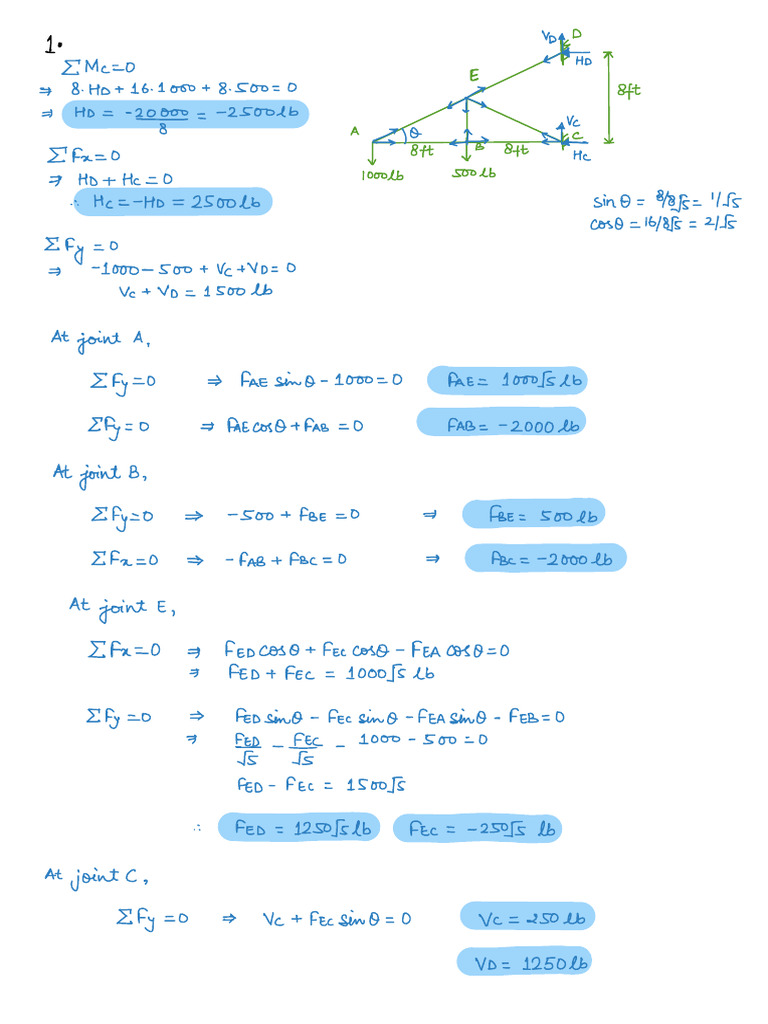 1.
ΣMc=0
⇒ 8·HD + 16·1000 + 8·500 = 0
⇒ HD = -20000/8 = -2500 lb
ΣFx=0
⇒ HD + HC = 0
∴ HC = -HD = 2500 lb
VD
D
HD
E
8ft
A
θ
VC
C
B
8ft
8ft
HC
1000 lb
500 lb
sinθ = 8/8√5 = 1/√5
cosθ = 16/8√5 = 2/√5
ΣFy = 0
⇒ -1000 - 500 + VC + VD = 0
VC + VD = 1500 lb
At joint A,
ΣFy=0 ⇒ FAE sinθ - 1000 = 0 FAE = 1000√5 lb
ΣFy=0 ⇒ FAE cosθ + FAB = 0 FAB = -2000 lb
At joint B,
ΣFy=0 ⇒ -500 + FBE = 0 ⇒ FBE = 500 lb
ΣFx=0 ⇒ -FAB + FBC = 0 ⇒ FBC = -2000 lb
At joint E,
ΣFx=0 ⇒ FED cosθ + FEC cosθ - FEA cosθ = 0
⇒ FED + FEC = 1000√5 lb
ΣFy=0 ⇒ FED sinθ - FEC sinθ - FEA sinθ - FEB = 0
⇒ FED/√5 - FEC/√5 - 1000 - 500 = 0
FED - FEC = 1500√5
∴ FED = 1250√5 lb FEC = -250√5 lb
At joint C,
ΣFy=0 ⇒ VC + FEC sinθ = 0 VC = 250 lb
VD = 1250 lb